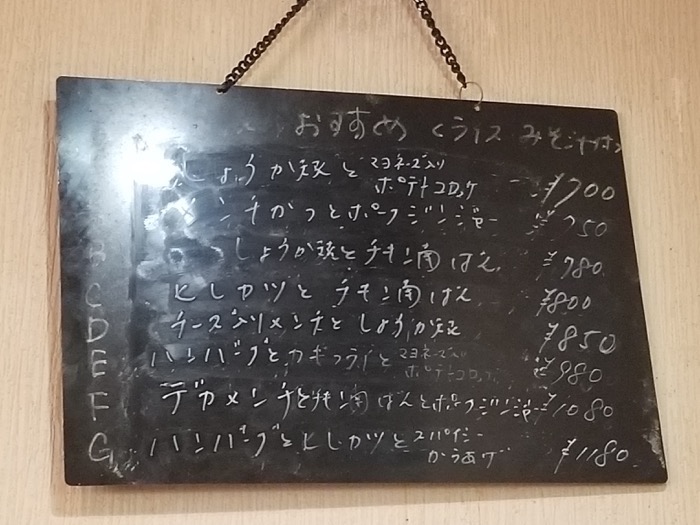 おすすめ くライス みそシャオン
しょうが焼と マヨネーズ入り ポテトコロッケ ¥700
メンチかつとポークジンジャー ¥750
B しょうが焼とチキン南ばん ¥780
C ヒレカツと チキン南ばん ¥800
D チーズ入りメンチと しょうが焼 ¥850
E ハンバーグとカキフライと マヨネーズ入り ポテトコロッケ ¥980
F デカメンチとチキン南ばんとポークジンジャー ¥1080
G ハンバーグとヒレカツと スパイシー からあげ ¥1180